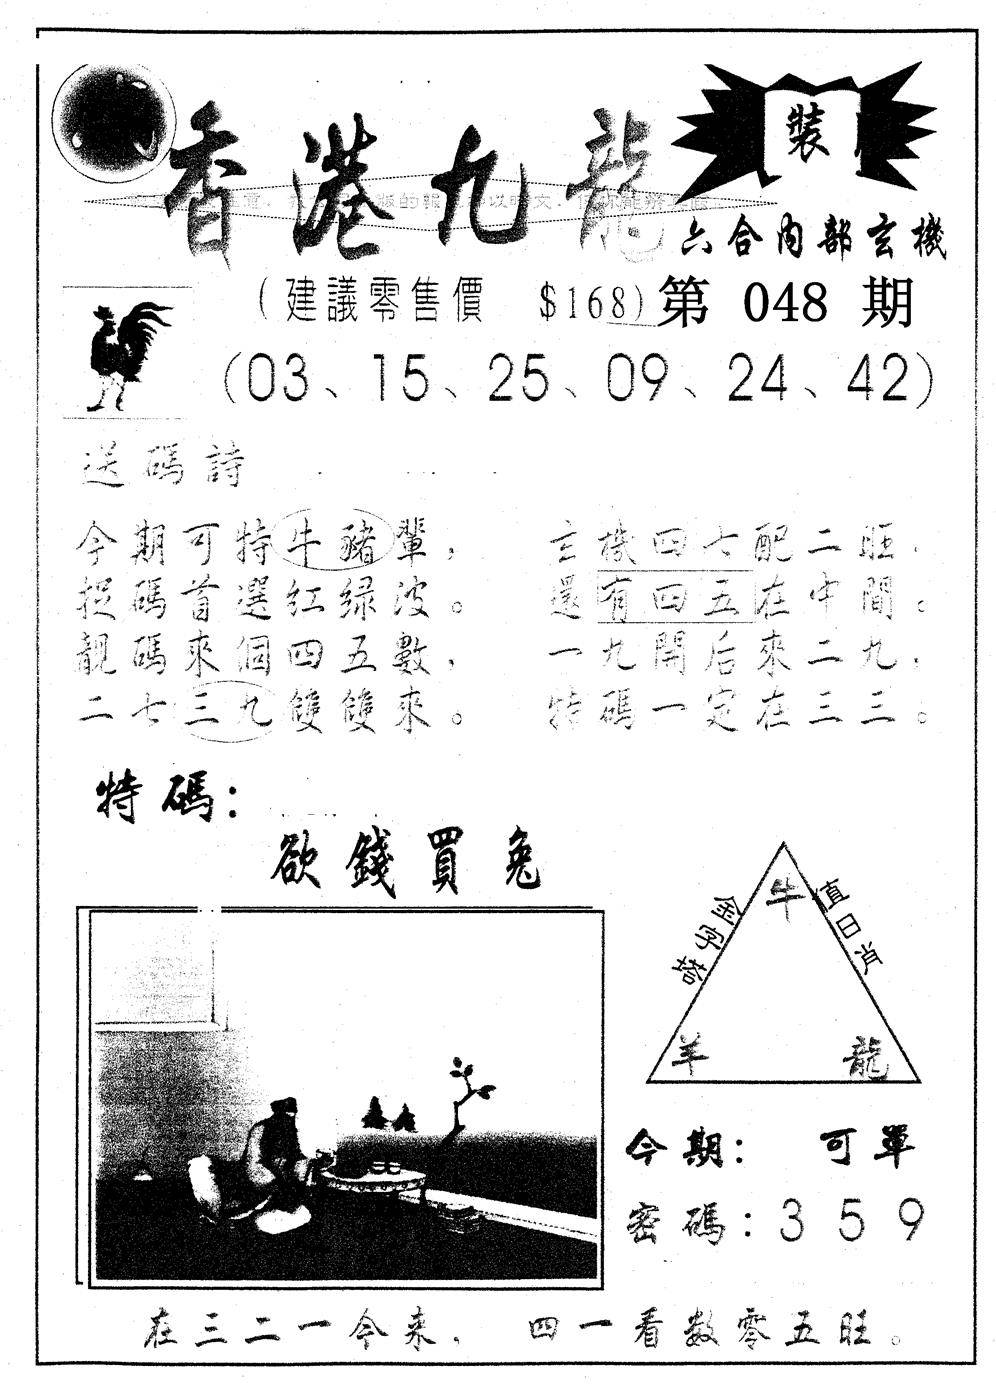 香港九龍
裝
六合內部玄機
(建議零售價 $168) 第 048 期
(03、15、25、09、24、42)
送碼詩
今期可特牛豬輩，
捉碼首選红绿波。
靚碼來個四五數，
二七三九雙雙來。
玄機四七配二旺，
還有四五在中間。
一九開后來二九，
特碼一定在三三。
特碼：
欲錢買兔
金字塔
牛
值日肖
羊
龍
今期： 可單
密碼：3 5 9
在三二一今来， 四一看数零五旺。